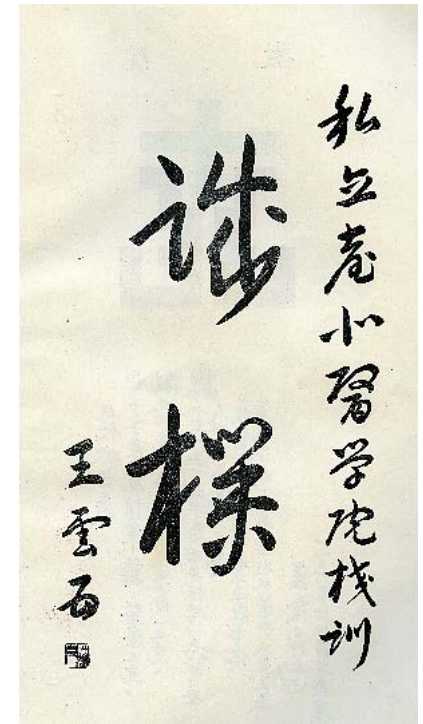 私立臺北醫學院校訓
誠樸
王雲五